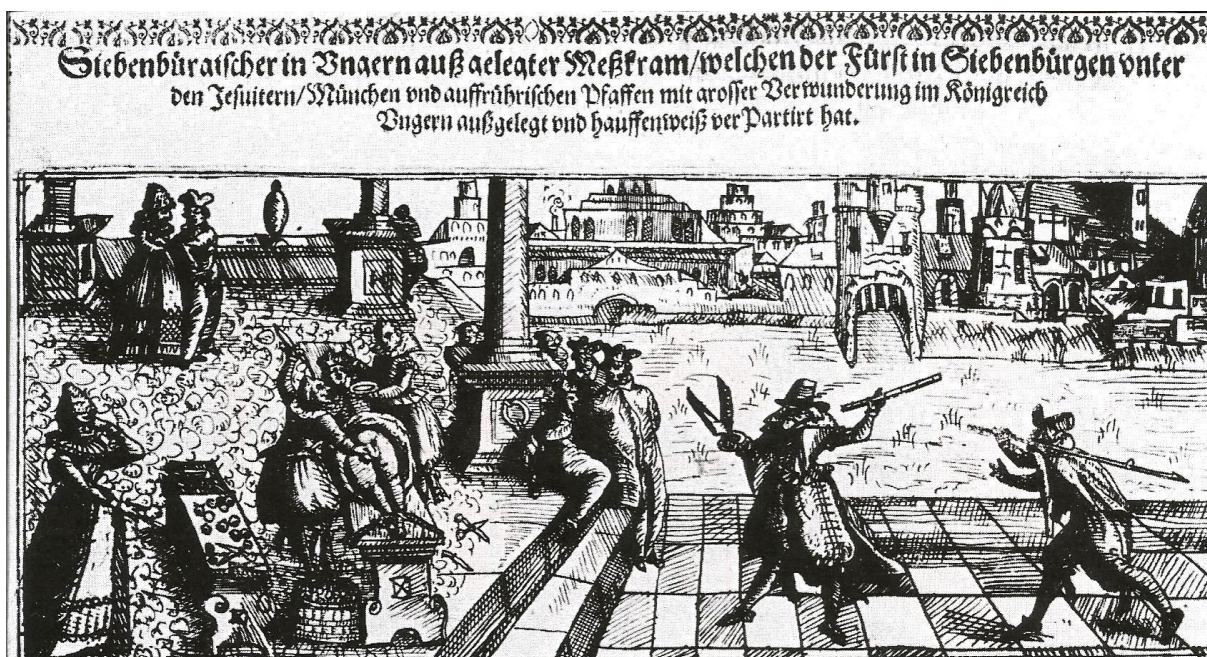 Siebenbürgischer in Vngern auß gelegter Meßkram/welchen der Fürst in Siebenbürgen vnter
den Jesuitern/München vnd auffrührischen Pfaffen mit grosser Verwunderung im Königreich
Vngern außgelegt vnd hauffenweiß ver Partirt hat.